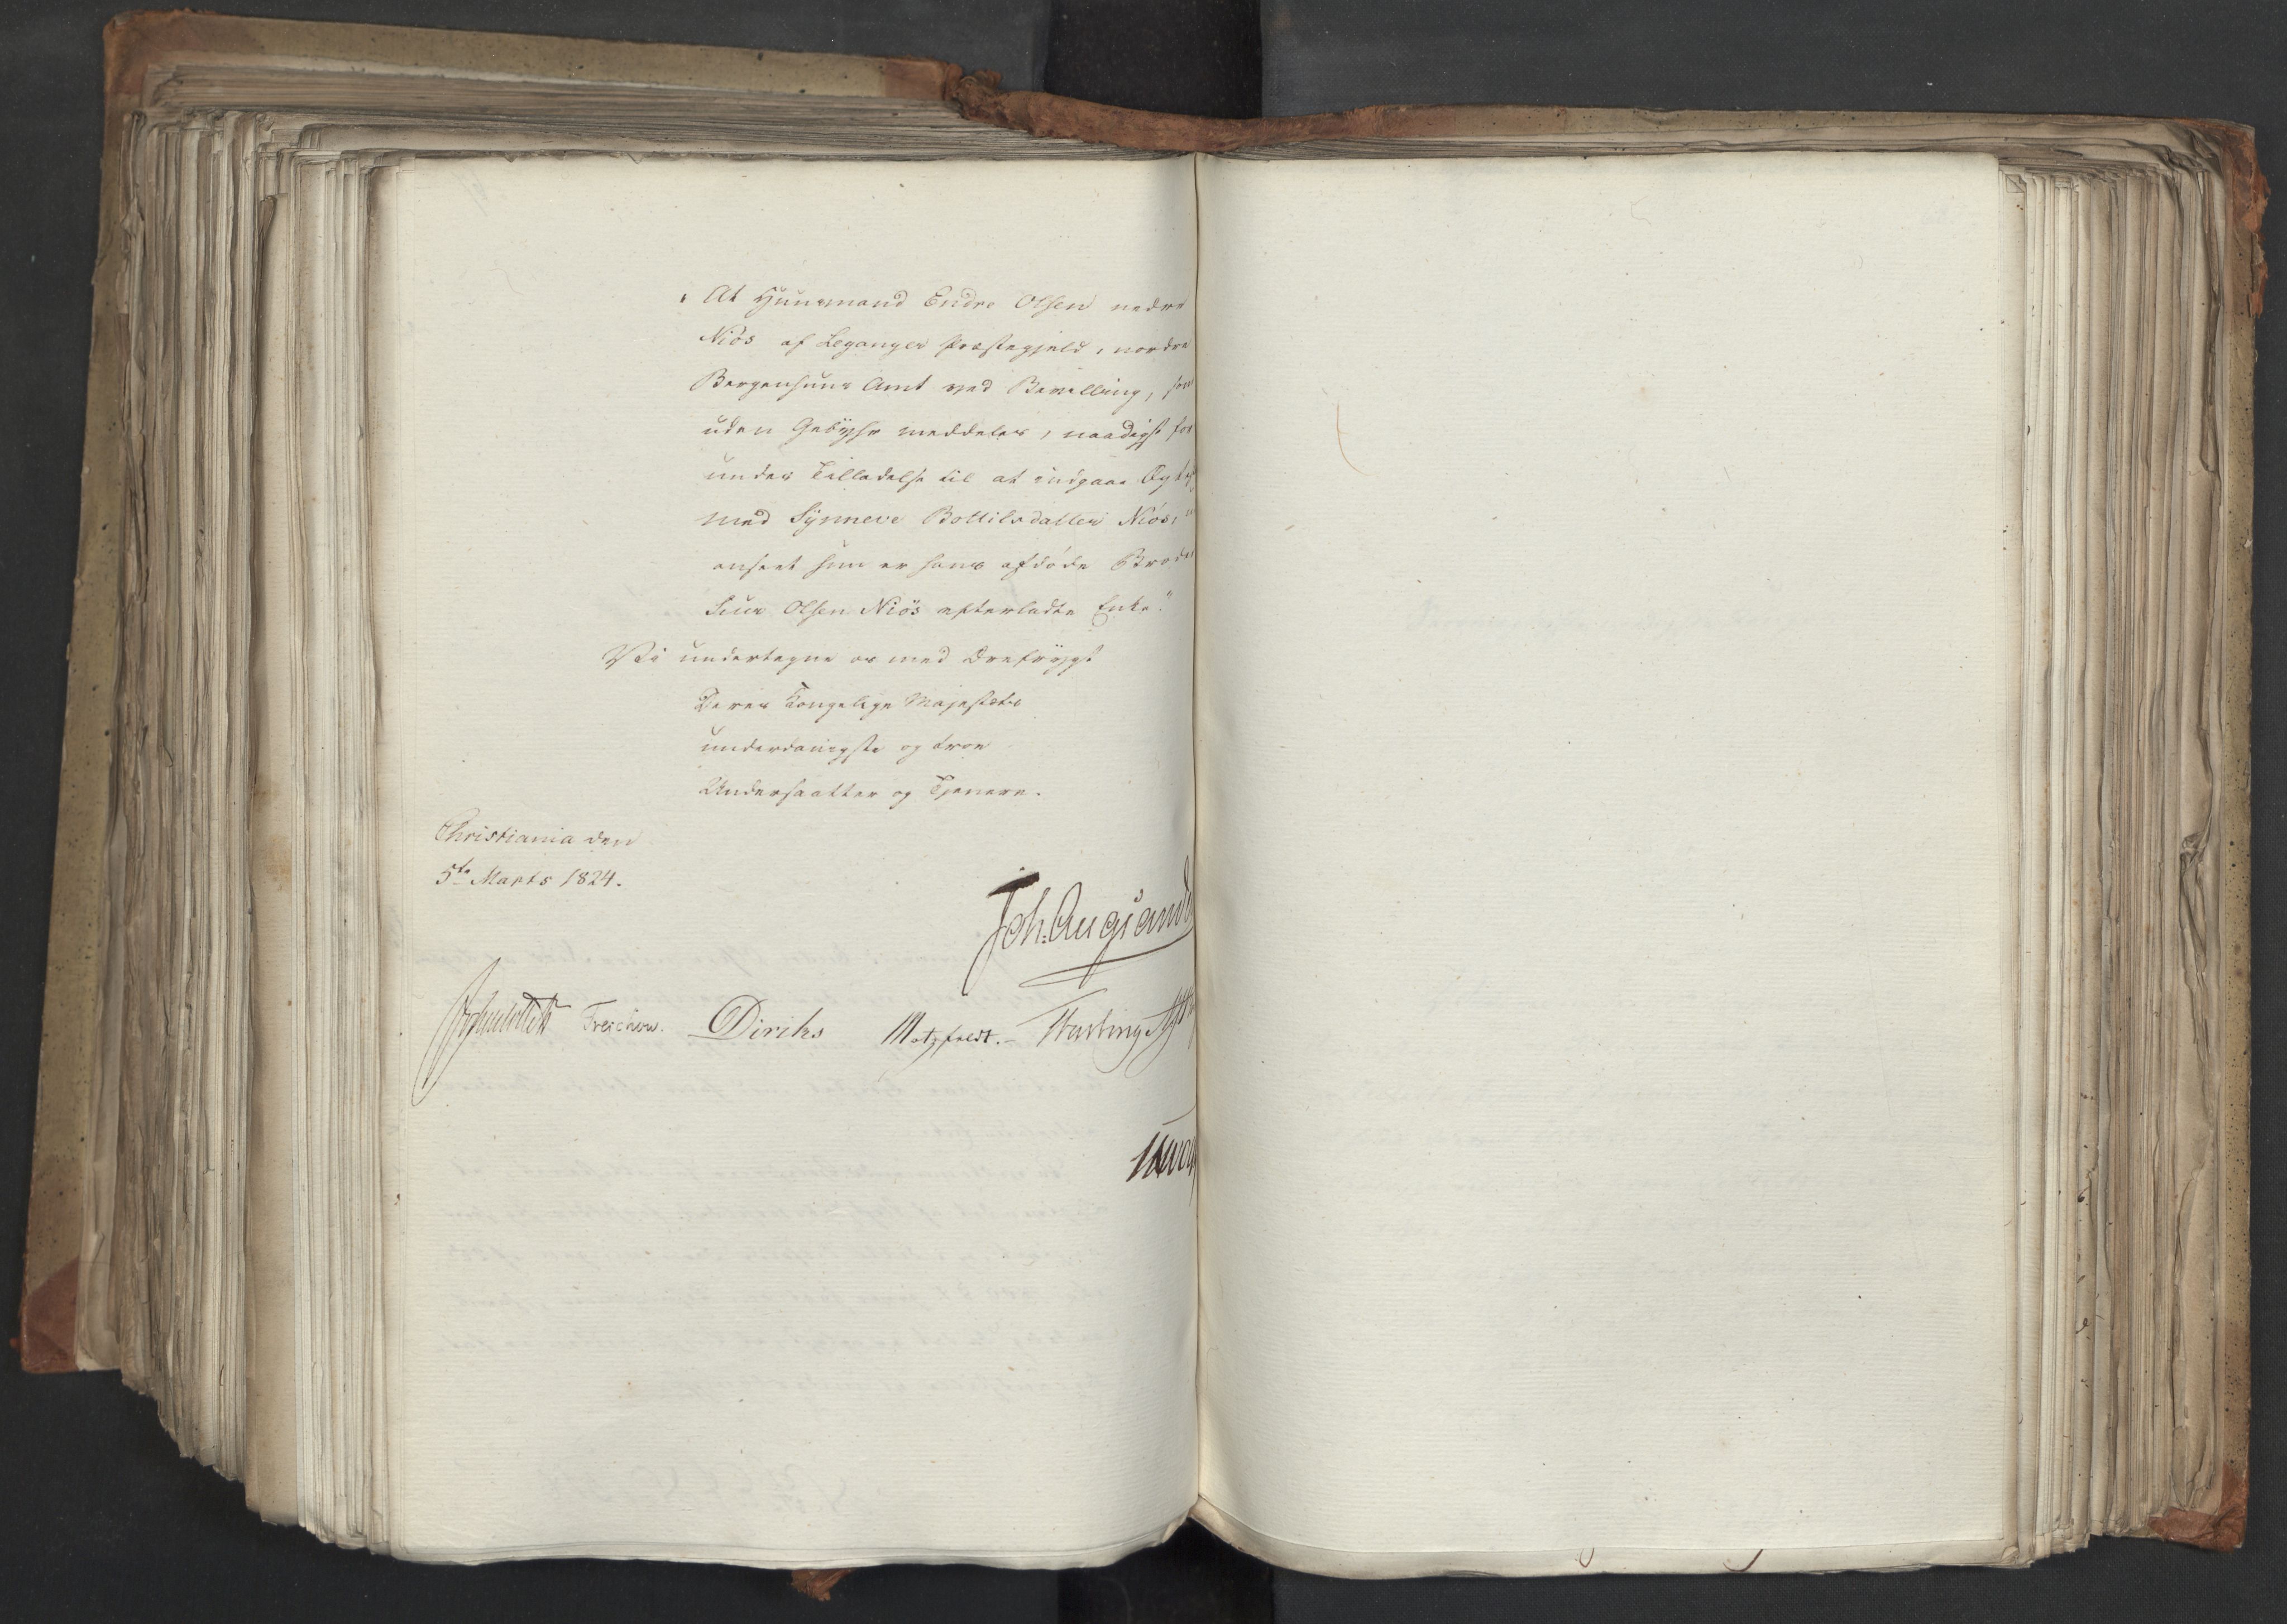 At Huusmand Endre Olsen nedre
Niøs af Leganger Præstegjeld, nordre
Bergenhuus Amt ved Bevilling, som
uden Gebyhr meddeles, naadigst for
undes Tilladelse til at indgaae Ægtesk
med Synneve Bottilsdatter Niøs, u
anseet hun er hans afdøde Broder
Siur Olsen Niøs efterladte Enke."
Vi undertegne os med Ærefrygt
Deres Kongelige Majestæts
underdanigste og troe
Undersaatter og Tjenere.
Christiania den
5te Marts 1824.
Joh. Aug Sande
Treschow. Diriks Motzfeldt.